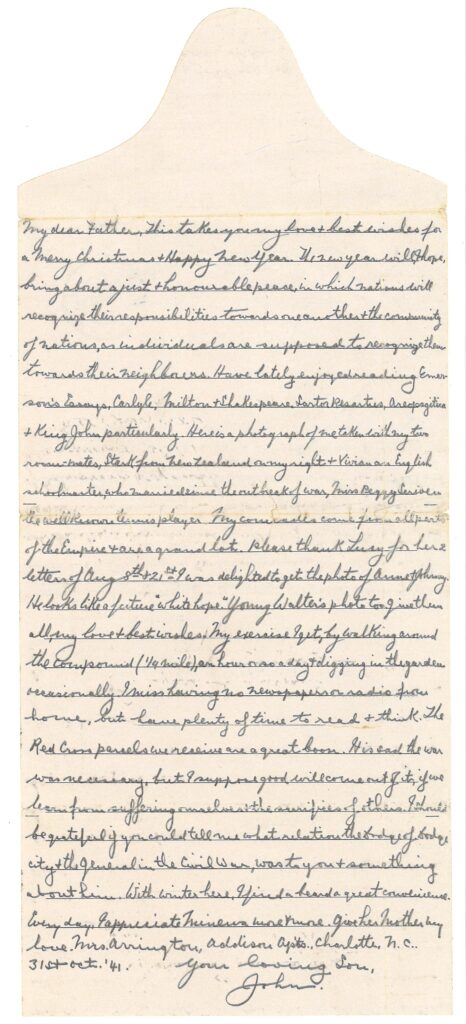 My dear Father, This takes you my love & best wishes for
a Merry Christmas & Happy New Year. The new year will, I hope,
bring about a just & honourable peace, in which nations will
recognize their responsibilities towards one another & the community
of nations, as individuals are supposed to recognize them
towards their neighbours. Have lately enjoyed reading Emer-
son's Essays, Carlyle, Milton & Shakespeare. Sartor Resartus, Areopagitica
& King John particularly. Here is a photograph of me taken with my two
room-mates, Stark from New Zealand on my right & Vivian an English
schoolmaster, who married since the outbreak of war, Miss Peggy Scriven
the well known tennis player. My comrades come from all parts
of the Empire & are a grand lot. Please thank Lucy for her 2
letters of Aug 8th & 21st I was delighted to get the photo of
He looks like a future "white hope." Young Walter's photo too. Give them
all, my love & best wishes. My exercise I get, by walking around
the compound (1/4 mile), an hour or so a day & digging in the garden
occasionally. I miss having no newspapers or radio from
home, but have plenty of time to read & think. The
Red Cross parcels we receive are a great boon. It is sad the war
was necessary, but I suppose good will come out of it, if we
learn from suffering ourselves & the sacrifices of others. I should
be grateful if you could tell me what relation the Dodge of Dodge
city & the General in the Civil War, was to you & something
about him. With winter here, I find a beard a great convenience.
Every day, I appreciate Minerva more & more. Give her Mother my
love. Mrs. Arrington, Addison Apts., Charlotte, N.C..
31st Oct. '41. Your loving Son,
John.